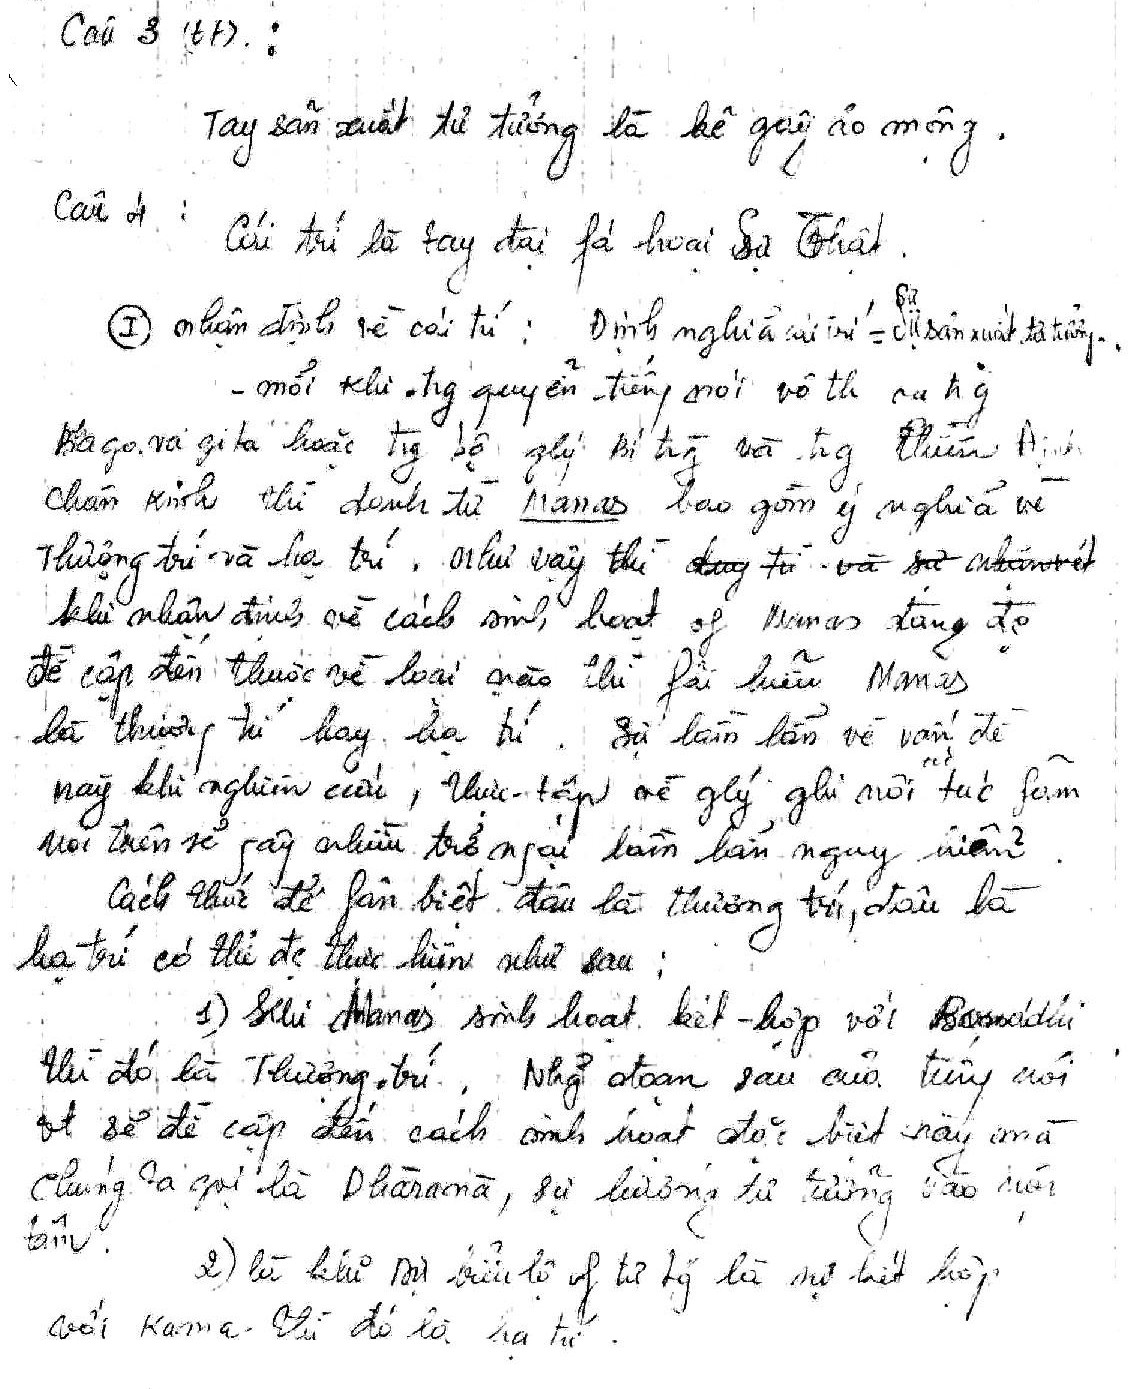 Câu 3 (tt). :
Tay sản xuất tư tưởng là kẻ gây ảo mộng.
Câu 4 :
Cái trí là tay đại fá hoại Sự Thật.
Ⓘ nhận định về cái trí : Định nghĩa cái trí = Sự sản xuất tư tưởng.
- mỗi khi tg quyển tiếng nói vô th
Bagavagita hoặc tg bộ glý Bí và tg Thiền Định
chân kinh thì danh từ Manas bao gồm ý nghĩa về
Thượng trí và hạ trí. như vậy thì
khi nhận định về cách sinh hoạt of Manas đang đc
đề cập đến thuộc về loại nào thì fải hiểu Manas
là thượng trí hay hạ trí. Sự lầm lẫn về vấn đề
này khi nghiên cứu, thực-tập về glý ghi nơi tác fẩm
nói trên sẽ gây nhiều trở ngại lầm lẫn nguy hiểm.
Cách thức để fân biệt đâu là thượng trí, đâu là
hạ trí có thể đc thực hiện như sau :
1) Khi Manas sinh hoạt kết-hợp với Bouddhi
thì đó là Thượng-trí. Nhg đoạn sau của tiếng nói
vt sẽ đề cập đến cách sinh hoạt đặc biệt này mà
chúng ta gọi là Dhārana, sự hướng tư tưởng vào nội
tâm.
2) là khi sự biểu lộ of tư tg là sự kết hợp
với Kama thì đó là hạ trí.